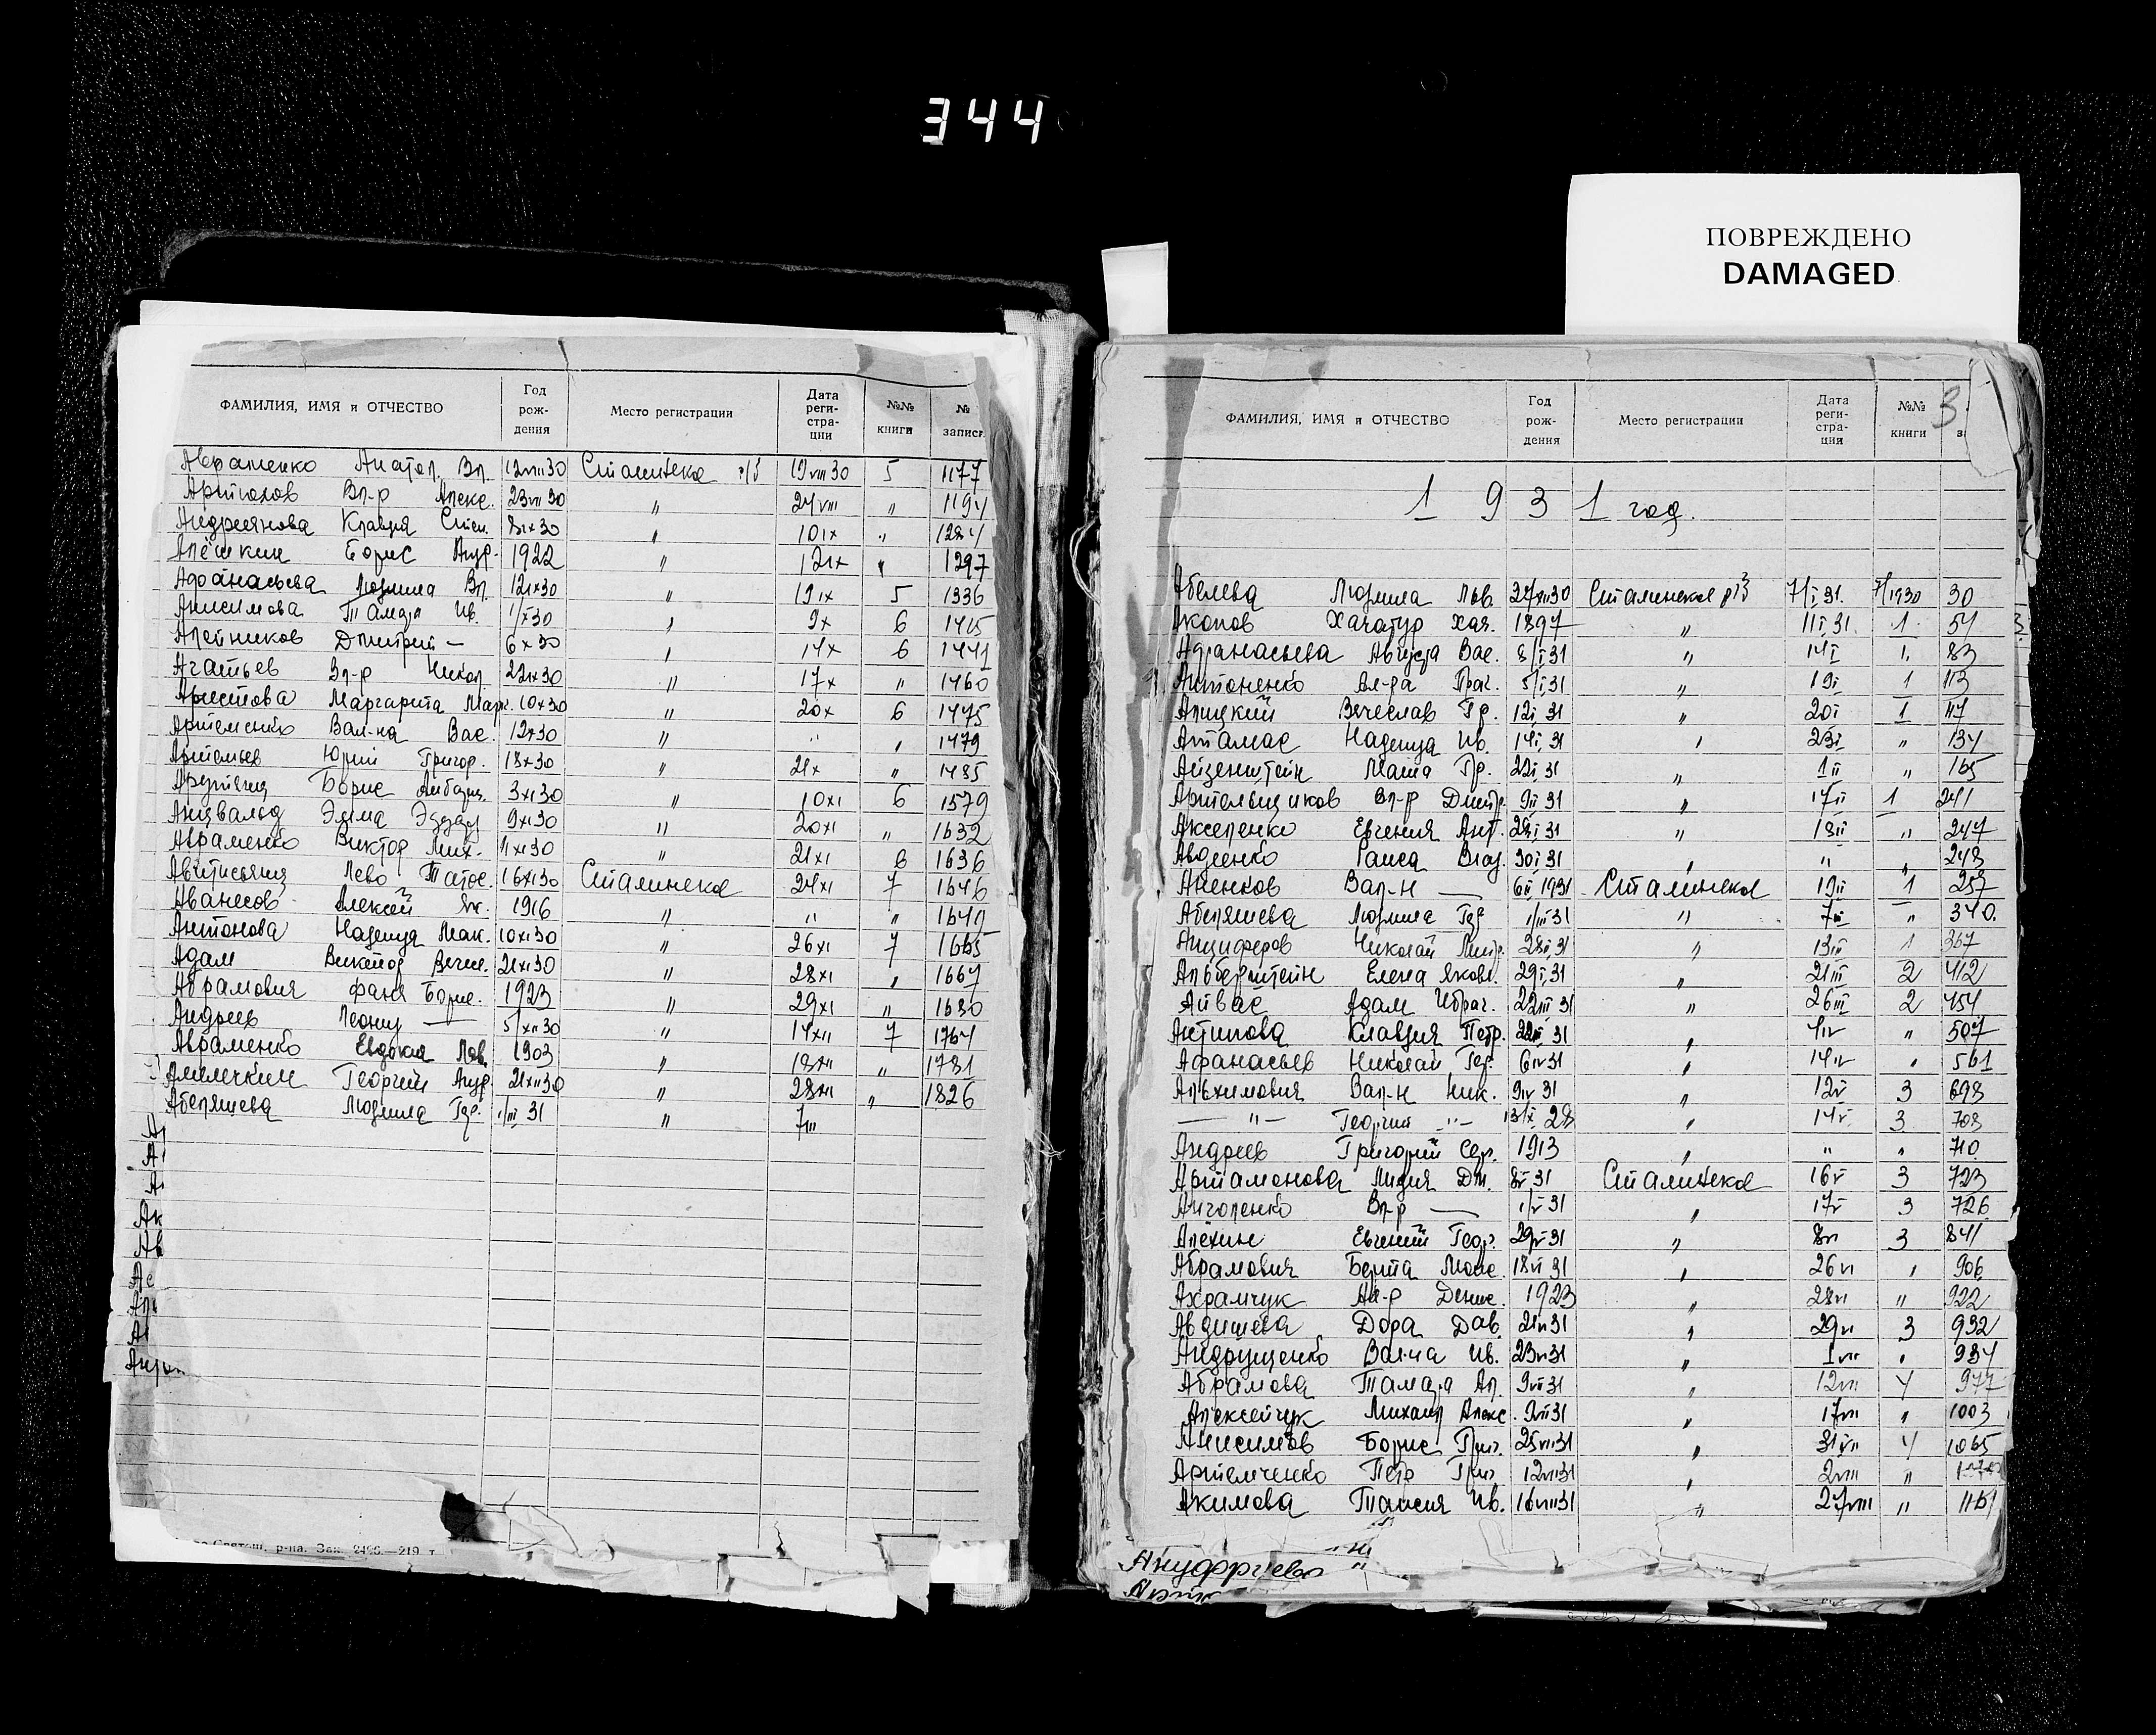 344
ПОВРЕЖДЕНО
DAMAGED
ФАМИЛИЯ, ИМЯ и ОТЧЕСТВО Год рож- дения Место регистрации Дата реги- стра- ции №№ книги № запис
Авраменко Анатол. Вл. 12VIII30 Сталинское р/б 19VIII30 5 1177
Артюхов Вл-р Алекс. 23VII30 " 24VIII " 1194
Андреянова Клавдия Степ. 8IX30 " 10IX " 1284
Алёшкин Борис Анд. 1922 " 12IX " 1297
Афанасьева Людмила Вл. 12IX30 " 19IX 5 1336
Анисимова Тамара Ив. 1/X30 " 9X 6 1415
Алейников Дмитрий — 6X30 " 14X 6 1441
Агатьев Вл-р Никол. 22IX30 " 17X " 1460
Аристова Маргарита Марк. 10X30 " 20X 6 1475
Артеменко Вал-на Вас. 12X30 " " " 1479
Артемьев Юрий Григор. 18X30 " 21X " 1485
Борис 3XI30 " 10XI 6 1579
Анцвальд Эльма Эдуард 9XI30 " 20XI " 1632
Авраменко Виктор Мих. 11XI30 " 21XI 6 1636
Лево Татос. 16XI30 Сталинское 24XI 7 1646
Аванесов Алексей Як. 1916 " " "
Антонова Надежда Мак. 10XI30 " 26XI 7 1665
Адам Виктор Вячес. 21XI30 " 28XI " 1667
Абрамович Фаня Борис. 1923 " 29XI " 1680
Андреев Леонид — 5/XII30 " 14XII 7 1764
Авраменко Евдокия Лав. 1903 " 18XII " 1781
Амелечкин Георгий Анд. 21XII30 " 28XII " 1826
Абеляшева Людмила Гер. 1/III 31 " 7III
Ак
Ав
ФАМИЛИЯ, ИМЯ и ОТЧЕСТВО Год рож- дения Место регистрации Дата реги- стра- ции №№ книги 3
1931 год.
Абелева Людмила Льв. 24XII30 Сталинское р/б 7/I 31. 7/1930 30
Акопов Хачатур Хач. 1897 " 11I,31 1 54
Афанасьева Августа Вас. 8/I31 " 14I 1 83
Антоненко Вл-ра Прак. 5/I,31 " 19I 1 113
Алицкий Вячеслав Гр. 12I,31 " 20I 1 117
Атамас Надежда Ив. 14I,31 " 23I " 134
Айзенштейн Маша Гр. 22I,31 " 1II " 165
Артельщиков Вл-р Дмитр. 9II31 " 17II 1 241
Акселенко Евгения Ант. 28I,31 " 18II " 247
Авдеенко Раиса Влад. 30I,31 " " " 248
Аненков Вал-н — 6II,1931 Сталинское 19II 1 257
Абеляшева Людмила Гер 1/III31 " 7III " 340.
Анциферов Николай Митр. 28I,31 " 13III 1 367
Альберштейн Елена Яковл. 29I,31 " 21III 2 412
Айвас Адам Ибраг. 22III 31 " 26III 2 454
Антипова Клавдия Петр. 22III,31 " 4IV " 507
Афанасьев Николай Гер. 6IV31 " 14IV " 561
Альхимович Вал-н Ник. 9IV 31 " 12V 3 698
— " — Георгий -"- 13/IX 28 " 14V 3 708
Андреев Григорий Сер. 1913 " " " 710
Артамонова Лидия Дм. 8V 31 Сталинское 16V 3 723
Анголенко Вл-р — 1/V 31 " 17V 3 726
Алехин Евгений Геор. 29V31 " 8VI 3 841
Абрамович Берта Моис. 18VI 31 " 26VI " 906
Ахрамчук Ал-р Денис. 1923 " 28VI " 922
Авдишева Дора Дав. 21VI31 " 29VI 3 932
Андрущенко Вал-на Ив. 23VI31 " 1VII " 934
Абрамова Тамара Ал. 9VII31 " 12VII 4 977
Алексейчук Михаил Алекс. 9VII31 " 17VII " 1003
Анисимов Борис Григ. 25VII31 " 31VII 4 1065
Артемченко Петр Григ. 12VII31 " 2VIII "
Акимова Таисия Ив. 16VIII31 " 27VIII " 1161
Ануфриева "
р-на. Зак. 2426.—219 т